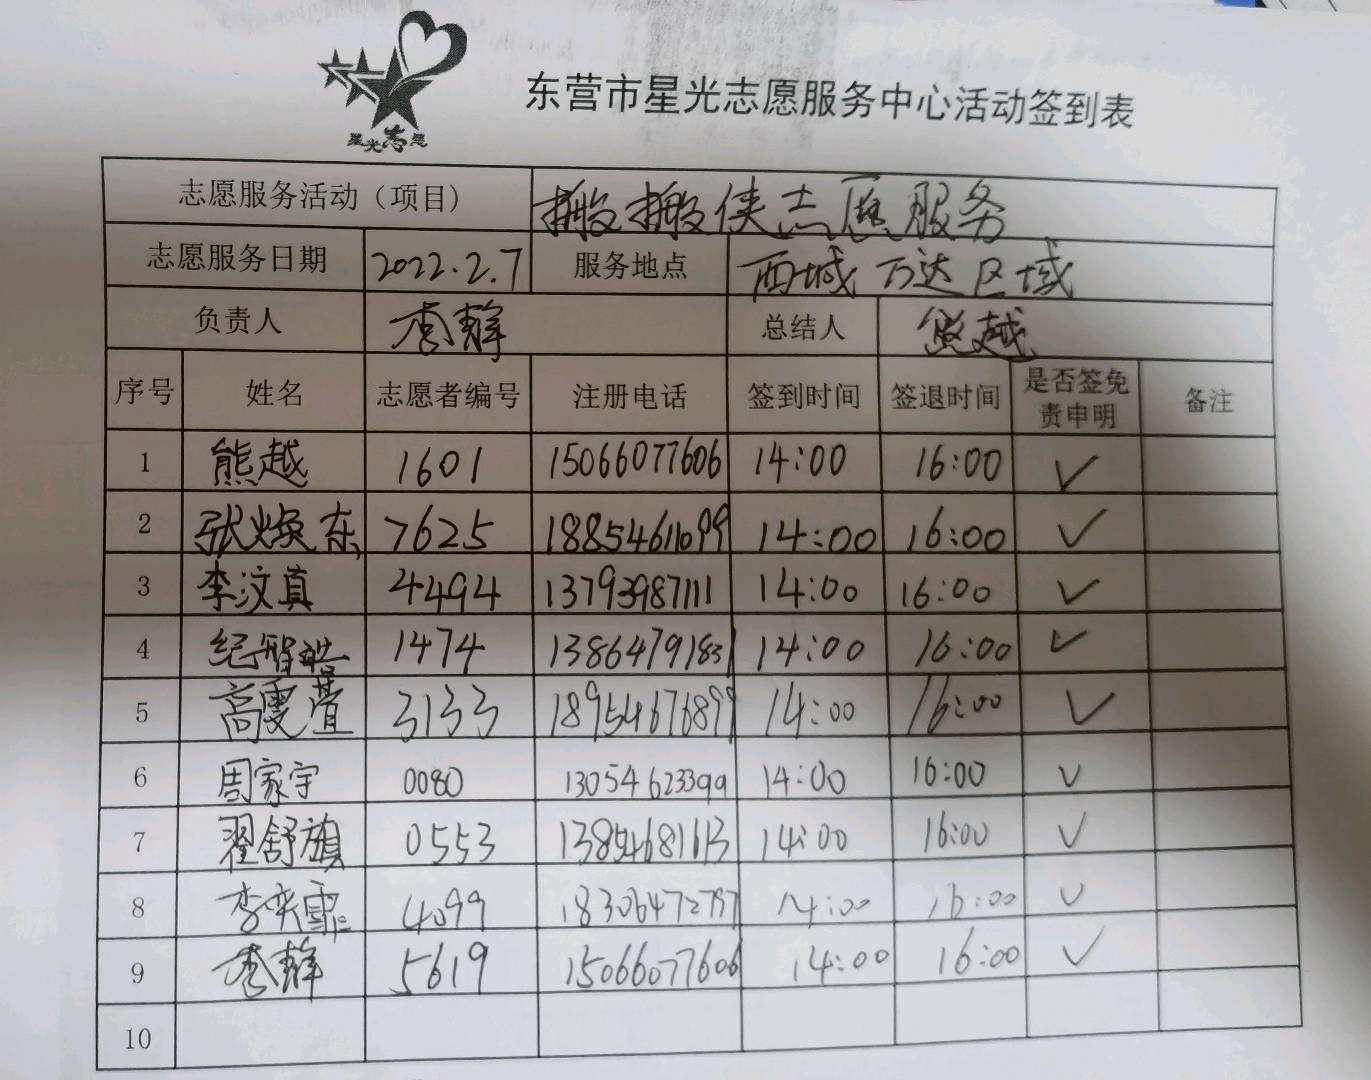 星光志愿
东营市星光志愿服务中心活动签到表
志愿服务活动（项目） 搬搬侠志愿服务
志愿服务日期 2022.2.7 服务地点 西城万达区域
负责人 李静 总结人 熊越
序号 姓名 志愿者编号 注册电话 签到时间 签退时间 是否签免责申明 备注
1 熊越 1601 15066077606 14:00 16:00 ✓
2 张焕东 7625 18854611099 14:00 16:00 ✓
3 李汶真 4494 13793987111 14:00 16:00 ✓
4 纪智皓 1474 13864791831 14:00 16:00 ✓
5 高雯萱 3133 18954676899 14:00 16:00 ✓
6 周家宇 0080 13054623399 14:00 16:00 ✓
7 翟舒旗 0553 13854681613 14:00 16:00 ✓
8 李奕霏 4099 18306472797 14:00 16:00 ✓
9 李静 5619 15066077606 14:00 16:00 ✓
10